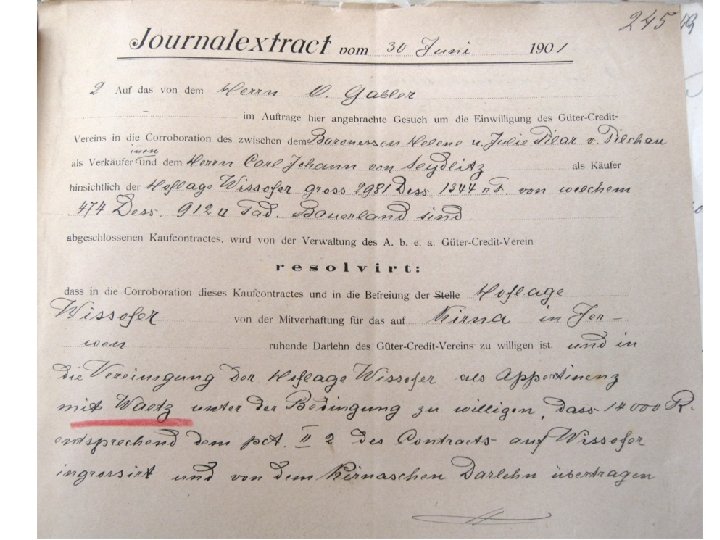 245
Journalextract vom 30 Juni 1901
2 Auf das von dem Herrn O. Gabler
im Auftrage hier angebrachte Gesuch um die Einwilligung des Güter-Credit-
Vereins in die Corroboration des zwischen dem Baronessen Helene u. Julie Pilar v. Pilchau
als Verkäufer innen und dem Herrn Carl Johann von Seydlitz als Käufer
hinsichtlich der Hoflage Wissofer gross 2981 Dess. 1344 von welchem
474 Dess. 912 Fad. Bauerland sind
abgeschlossenen Kaufcontractes, wird von der Verwaltung des A. b. e. a. Güter-Credit-Verein
resolvirt:
dass in die Corroboration dieses Kaufcontractes und in die Befreiung der Stelle Hoflage
Wissofer von der Mitverhaftung für das auf Kirna in Jer-
wen ruhende Darlehn des Güter-Credit-Vereins zu willigen ist und in
die Vereinigung der Hoflage Wissofer als Appertinenz
mit Waetz unter der Bedingung zu willigen, dass 14000 R.
entsprechend dem pct. II 2 des Contracts auf Wissofer
ingrossirt und von dem Kirnaschen Darlehn übertragen